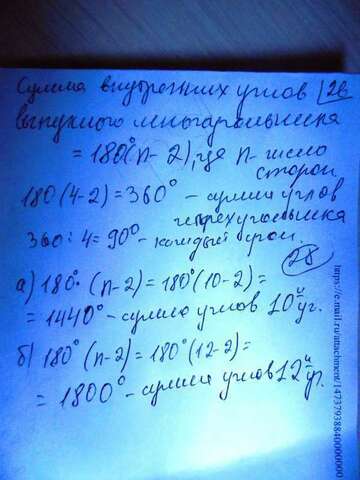 Сумма внутренних углов 26
выпуклого многоугольника
= 180°(n-2), где n-число
сторон
180(4-2)=360° - сумма углов
четырехугольника
360:4=90° - каждый
28
а) 180°·(n-2)=180°(10-2)=
= 1440° - сумма углов 10й уг.
б) 180°(n-2)=180°(12-2)=
= 1800° - сумма углов 12й уг.